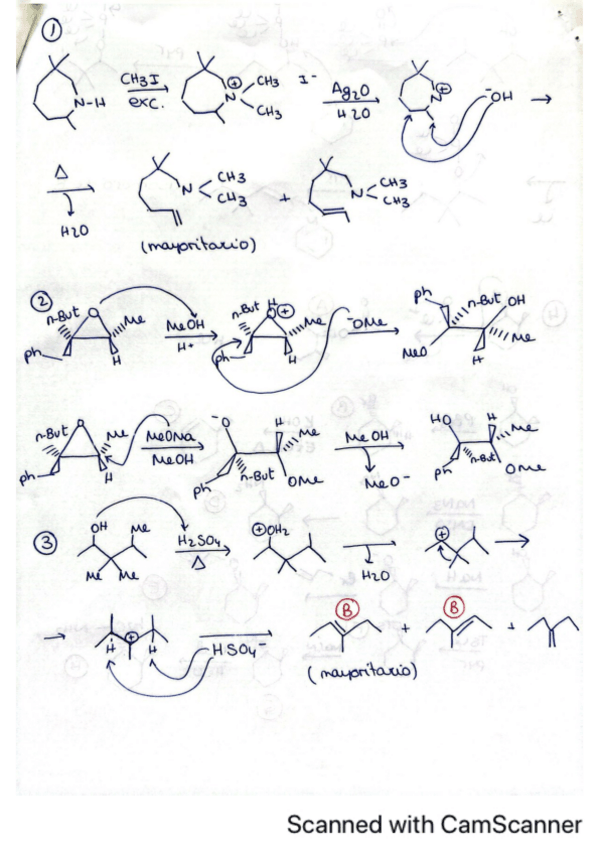 ①
CH3I
exc.
N-H
N ⊕
CH3
CH3
I⁻
Ag2O
H2O
N ⊕
⁻OH
Δ
H2O
N
CH3
CH3
(mayoritario)
+
N
CH3
CH3
②
n-But
O
Me
Ph
H
MeOH
H+
n-But
H
O ⊕
Me
Ph
H
⁻OMe
Ph
n-But
OH
MeO
Me
H
n-But
O
Me
Ph
H
MeONa
MeOH
O⁻
H
Me
Ph
n-But
OMe
MeOH
MeO⁻
HO
H
Me
Ph
n-But
OMe
③
OH
Me
Me
Me
H2SO4
Δ
⊕OH2
H2O
⊕
H
⊕
H
HSO4⁻
B
+
B
+
(mayoritario)
Scanned with CamScanner